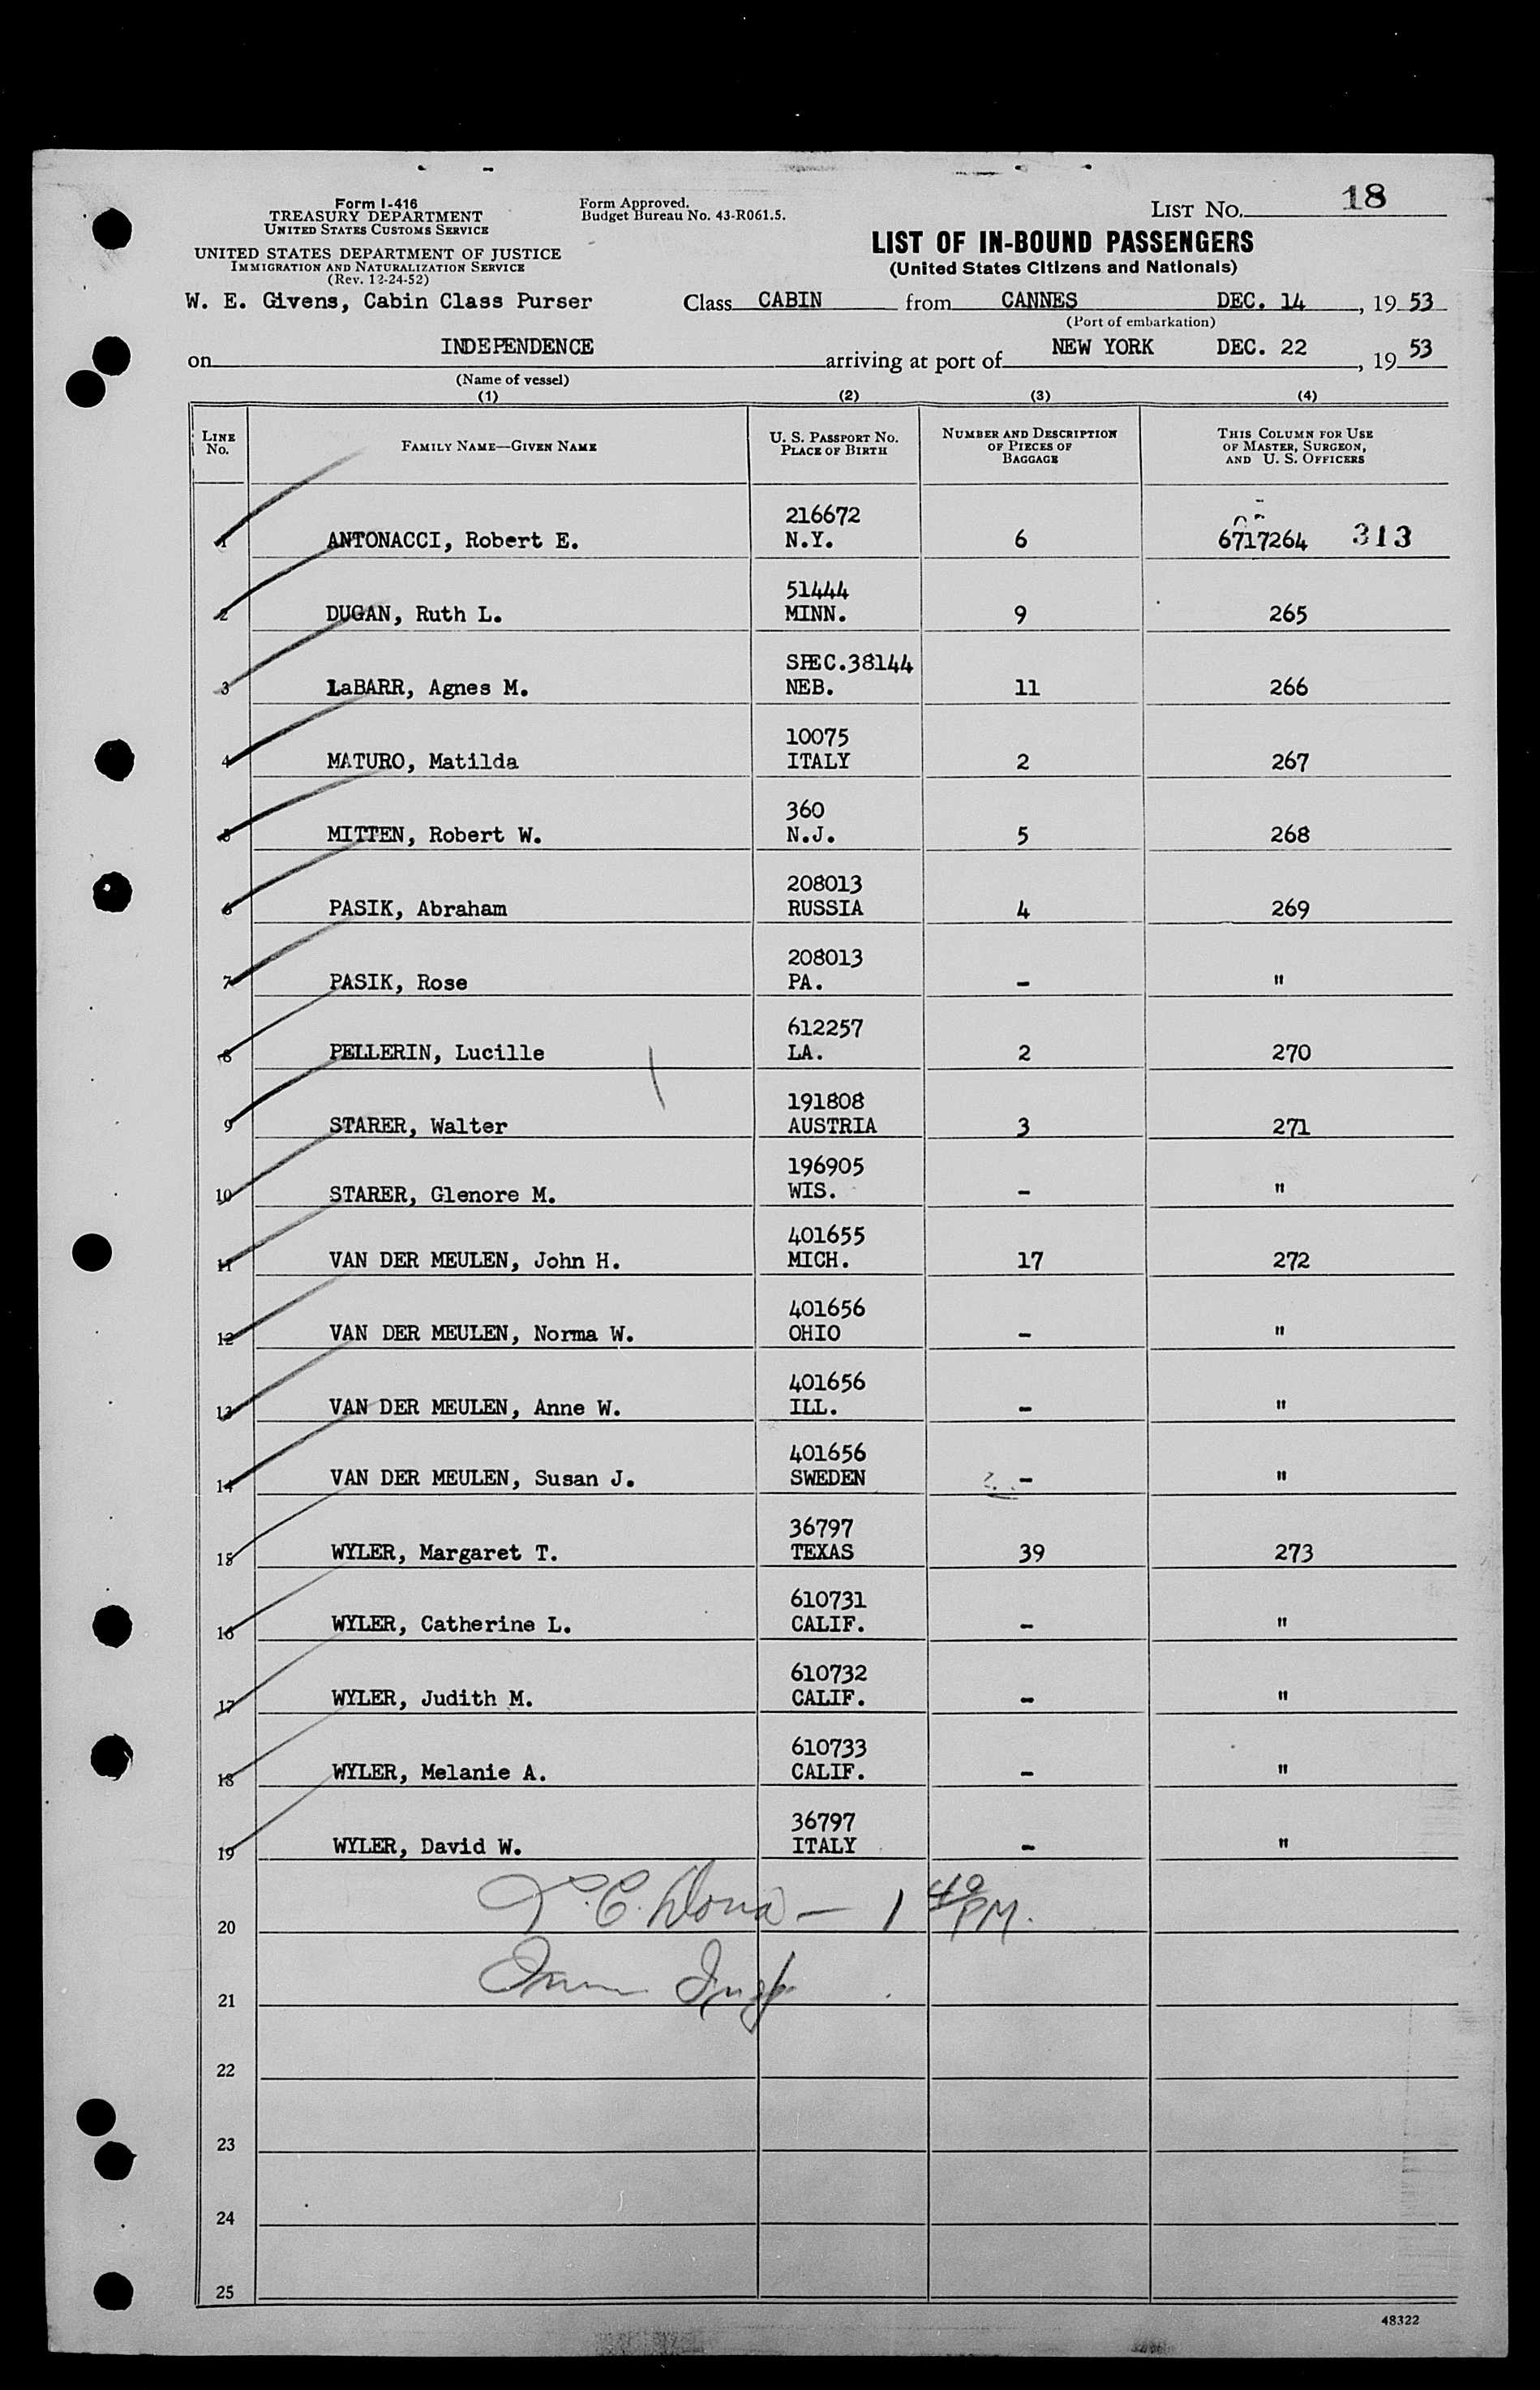 Form I-416
TREASURY DEPARTMENT
UNITED STATES CUSTOMS SERVICE
UNITED STATES DEPARTMENT OF JUSTICE
IMMIGRATION AND NATURALIZATION SERVICE
(Rev. 12-24-52)
Form Approved.
Budget Bureau No. 43-R061.5.
LIST NO. 18
LIST OF IN-BOUND PASSENGERS
(United States Citizens and Nationals)
W. E. Givens, Cabin Class Purser Class CABIN from CANNES DEC. 14, 19 53
(Port of embarkation)
on INDEPENDENCE arriving at port of NEW YORK DEC. 22, 19 53
(Name of vessel)
(1) (2) (3) (4)
LINE No. FAMILY NAME—GIVEN NAME U. S. PASSPORT NO. PLACE OF BIRTH NUMBER AND DESCRIPTION OF PIECES OF BAGGAGE THIS COLUMN FOR USE OF MASTER, SURGEON, AND U. S. OFFICERS
216672
1 ANTONACCI, Robert E. N.Y. 6 6717264 313
51444
2 DUGAN, Ruth L. MINN. 9 265
SPEC.38144
3 LaBARR, Agnes M. NEB. 11 266
10075
4 MATURO, Matilda ITALY 2 267
360
5 MITTEN, Robert W. N.J. 5 268
208013
6 PASIK, Abraham RUSSIA 4 269
208013
7 PASIK, Rose PA. - "
612257
8 PELLERIN, Lucille LA. 2 270
191808
9 STARER, Walter AUSTRIA 3 271
196905
10 STARER, Glenore M. WIS. - "
401655
11 VAN DER MEULEN, John H. MICH. 17 272
401656
12 VAN DER MEULEN, Norma W. OHIO - "
401656
13 VAN DER MEULEN, Anne W. ILL. - "
401656
14 VAN DER MEULEN, Susan J. SWEDEN - "
36797
15 WYLER, Margaret T. TEXAS 39 273
610731
16 WYLER, Catherine L. CALIF. - "
610732
17 WYLER, Judith M. CALIF. - "
610733
18 WYLER, Melanie A. CALIF. - "
36797
19 WYLER, David W. ITALY - "
20 1 40 PM.
21
22
23
24
25
48322